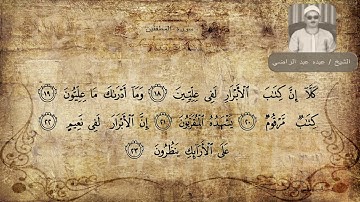 سورة المطففين
الشيخ / عبده عبد الراضي
كَلَّا إِنَّ كِتَٰبَ الْأَبْرَارِ لَفِي عِلِّيِّينَ ١٨ وَمَا أَدْرَىٰكَ مَا عِلِّيُّونَ ١٩
كِتَٰبٌ مَّرْقُومٌ ٢٠ يَشْهَدُهُ الْمُقَرَّبُونَ ٢١ إِنَّ الْأَبْرَارَ لَفِي نَعِيمٍ ٢٢
عَلَى الْأَرَائِكِ يَنظُرُونَ ٢٣